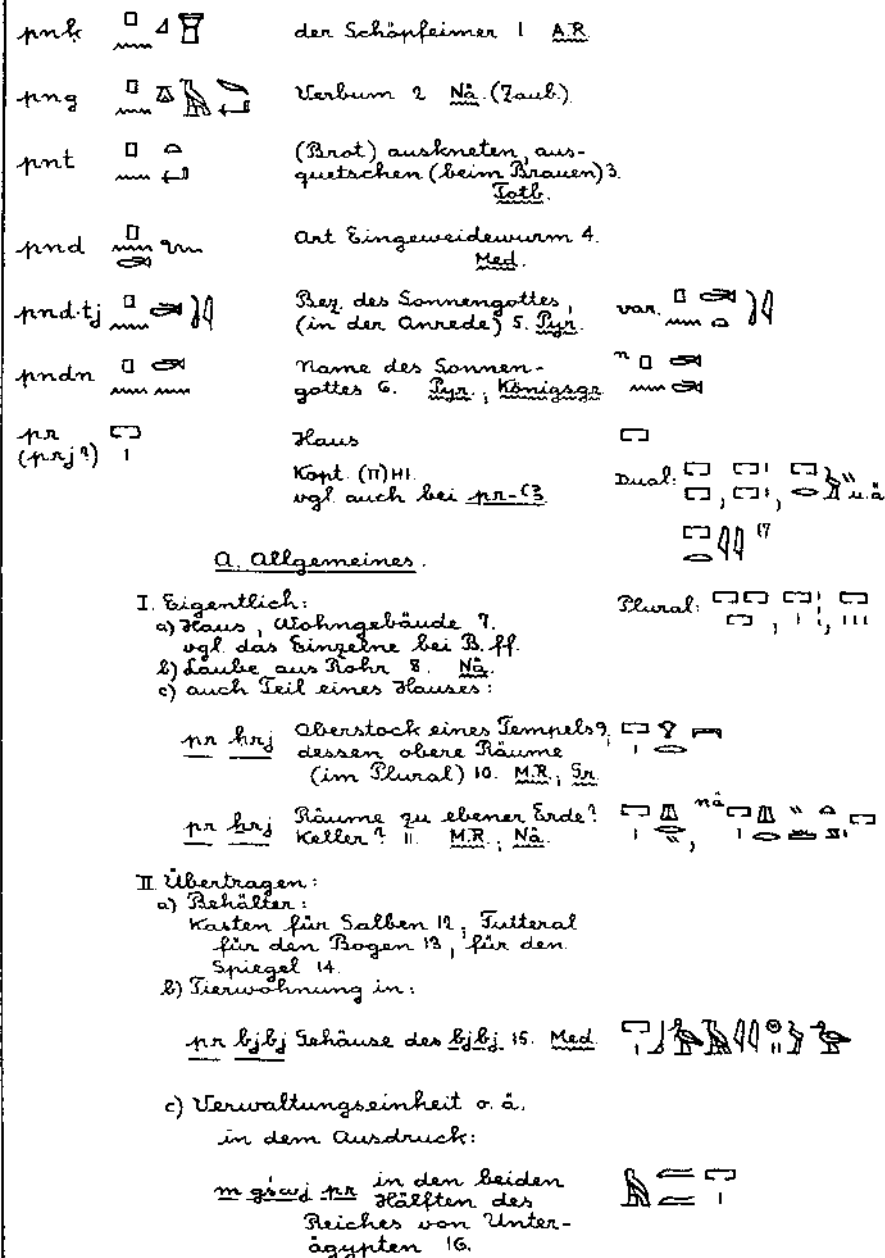 pnḳ der Schöpfeimer 1 A.R.
png Verbum 2 Nä. (Zaub.)
pnt (Brot) auskneten, aus-
quetschen (beim Brauen) 3.
Totb.
pnd Art Eingeweidewurm 4.
Med.
pnd.tj Bez. des Sonnengottes, var.
(in der Anrede) 5. Pyr.
pndn Name des Sonnen-
gottes 6. Pyr.; Königsgr.
pr Haus
(prj?)
Kopt. (Π)ΗΙ. Dual: u.ä.
vgl. auch bei pr-ꜥꜣ 17
A. Allgemeines.
I. Eigentlich: Plural:
a) Haus, Wohngebäude 7.
vgl. das Einzelne bei B. ff.
b) Laube aus Rohr 8. Nä.
c) auch Teil eines Hauses:
pr ḥrj Oberstock eines Tempels 9,
dessen obere Räume
(im Plural) 10. M.R.; Gr.
pr ẖrj Räume zu ebener Erde? nä
Keller? 11. M.R., Nä.
II. Übertragen:
a) Behälter:
Kasten für Salben 12, Futteral
für den Bogen 13, für den
Spiegel 14.
b) Tierwohnung in:
pr bjbj Gehäuse des bjbj 15. Med.
c) Verwaltungseinheit o. ä.
in dem Ausdruck:
m gśwj pr in den beiden
Hälften des
Reiches von Unter-
ägypten 16.